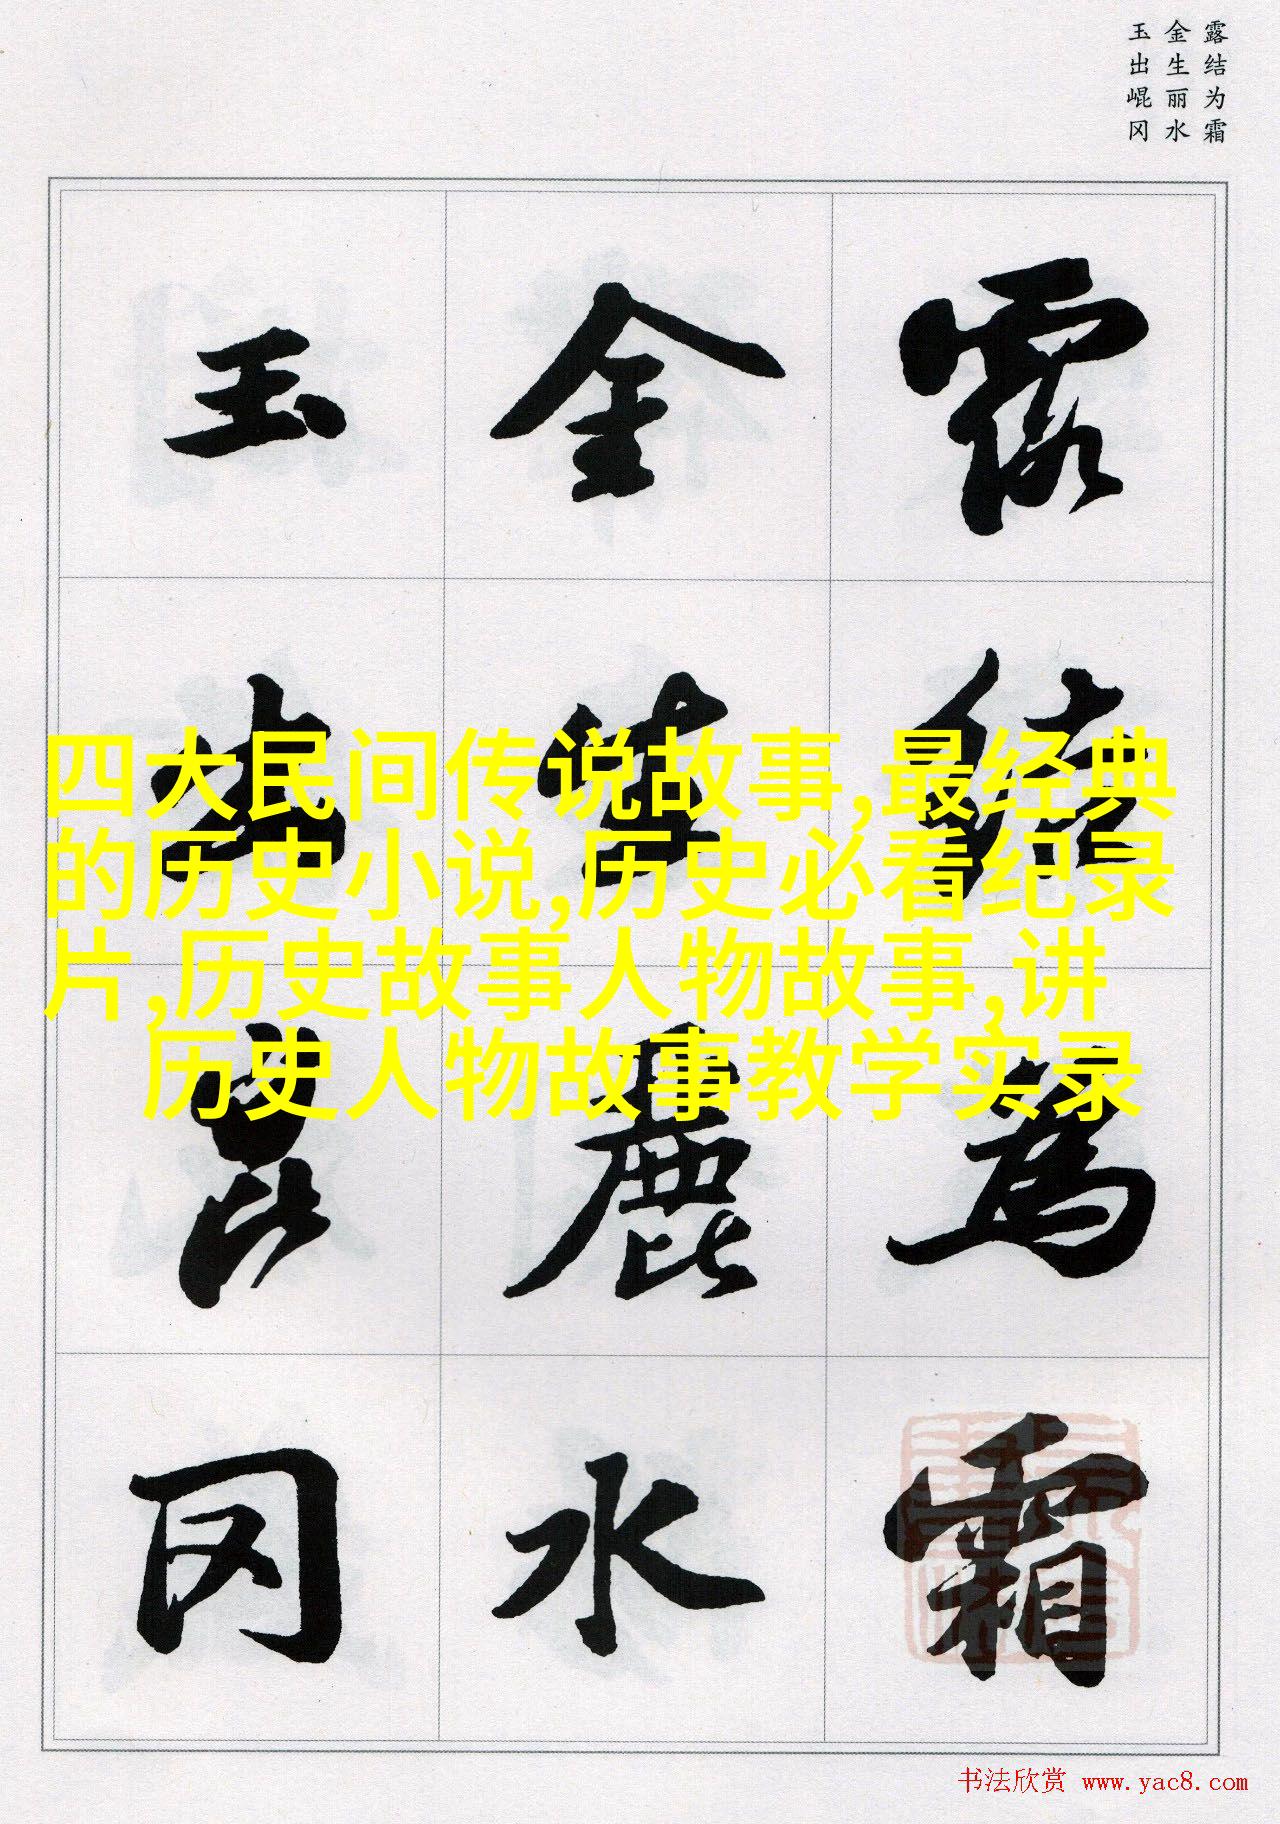 露结为霜
金生丽水
玉出崐冈
露结为霜
金生麗水
玉出崑冈
四大民间传说故事,最经典
的历史小说,历史必看纪录
片,历史故事人物故事,讲
历史人物故事教学实录
书法欣赏 www.yac8.com